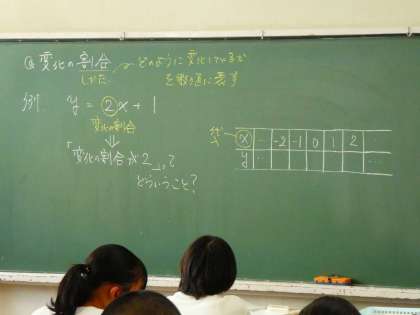 Q 変化の割合
しかた
どのように変化しているか
を数で表す
例. y = 2x + 1
変化の割合
⇓
「変化の割合が2」って?
どういうこと?
x … -2 -1 0 1 2
y … …